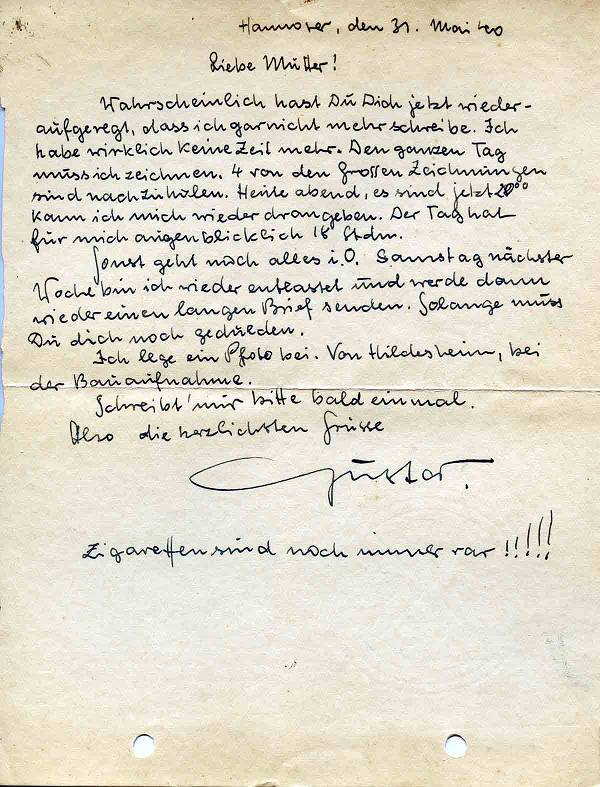 Hannover, den 31. Mai 40
Liebe Mutter!
Wahrscheinlich hast Du Dich jetzt wieder-
aufgeregt, dass ich gar nicht mehr schreibe. Ich
habe wirklich keine Zeit mehr. Den ganzen Tag
muss ich zeichnen. 4 von den Grossen Zeichnungen
sind nachzuholen. Heute abend, es sind jetzt 20⁰⁰
kann ich mich wieder drangeben. Der Tag hat
für mich augenblicklich 18 Stdn.
Sonst geht noch alles i.O. Samstag nächster
Woche bin ich wieder entlastet und werde dann
wieder einen langen Brief senden. Solange muss
Du dich noch gedulden.
Ich lege ein Photo bei. Von Hildesheim, bei
der Bauaufnahme.
Schreibt' mir bitte bald einmal.
Also die herzlichsten Grüsse
Gustav.
Zigaretten sind noch immer rar !!!!!